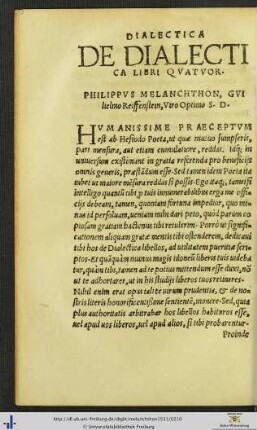 DIALECTICA
DE DIALECTI
CA LIBRI QVATVOR.
PHILIPPVS MELANCHTHON, GVI
lielmo Reiffenstein, Viro Optimo S. D.
HVMANISSIME PRAECEPTVM
est ab Hesiodo Poeta, ut quæ mutuo sumpseris,
pari mensura, aut etiam cumulatiore, reddat. Idq; in
uniuersum existimant in gratia referenda pro beneficijs
omnis generis, præstandum esse. Sed tamen idem Poeta ita
iubet ut maiore mensura reddas si possis. Ego itaq;, tametsi
intelligo quantũ tibi p tuis innumerabilibus erga me offi
cijs debeam, tamen, quoniam fortuna impedior, quo mi
nus id persoluam, ueniam mihi dari peto, quòd parum co
piosam gratiam hactenus tibi retulerim. Porrò ut signifi-
cationem aliquam gratæ mentis tibi ostenderem, dedicaui
tibi hos de Dialectica libellos, ad utilitatem pueritiæ scri
ptos. Et quãquàm munus magis idoneũ liberis tuis uideba
tur, quàm tibi, tamen ad te potius mittendum esse duxi, nõ
ut te adhortarer, ut in his studijs liberos tuos erudires.
Nihil enim erat opus tali te uirum prudentia, & de no-
stris literis honorificentissime sentientẽ, monere. Sed, quia
plus authoritatis arbitrabar hos libellos habituros esse,
uel apud uos liberos, uel apud alios, si tibi probarentur.
Proinde
http://dl.ub.uni-freiburg.de/diglit/melanchthon1531/0210
© Universitätsbibliothek Freiburg